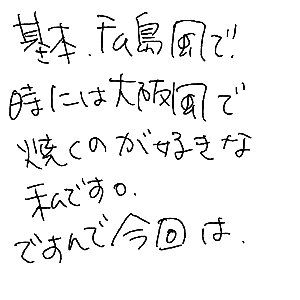 基本、広島風で!
時には大阪風で
焼くのが好きな
私です。
ですんで今回は、